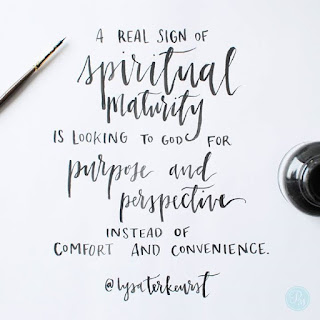 A REAL SIGN OF
spiritual
maturity
IS LOOKING TO GOD FOR
purpose and
perspective
INSTEAD OF
COMFORT AND CONVENIENCE.
@lysaterkeurst